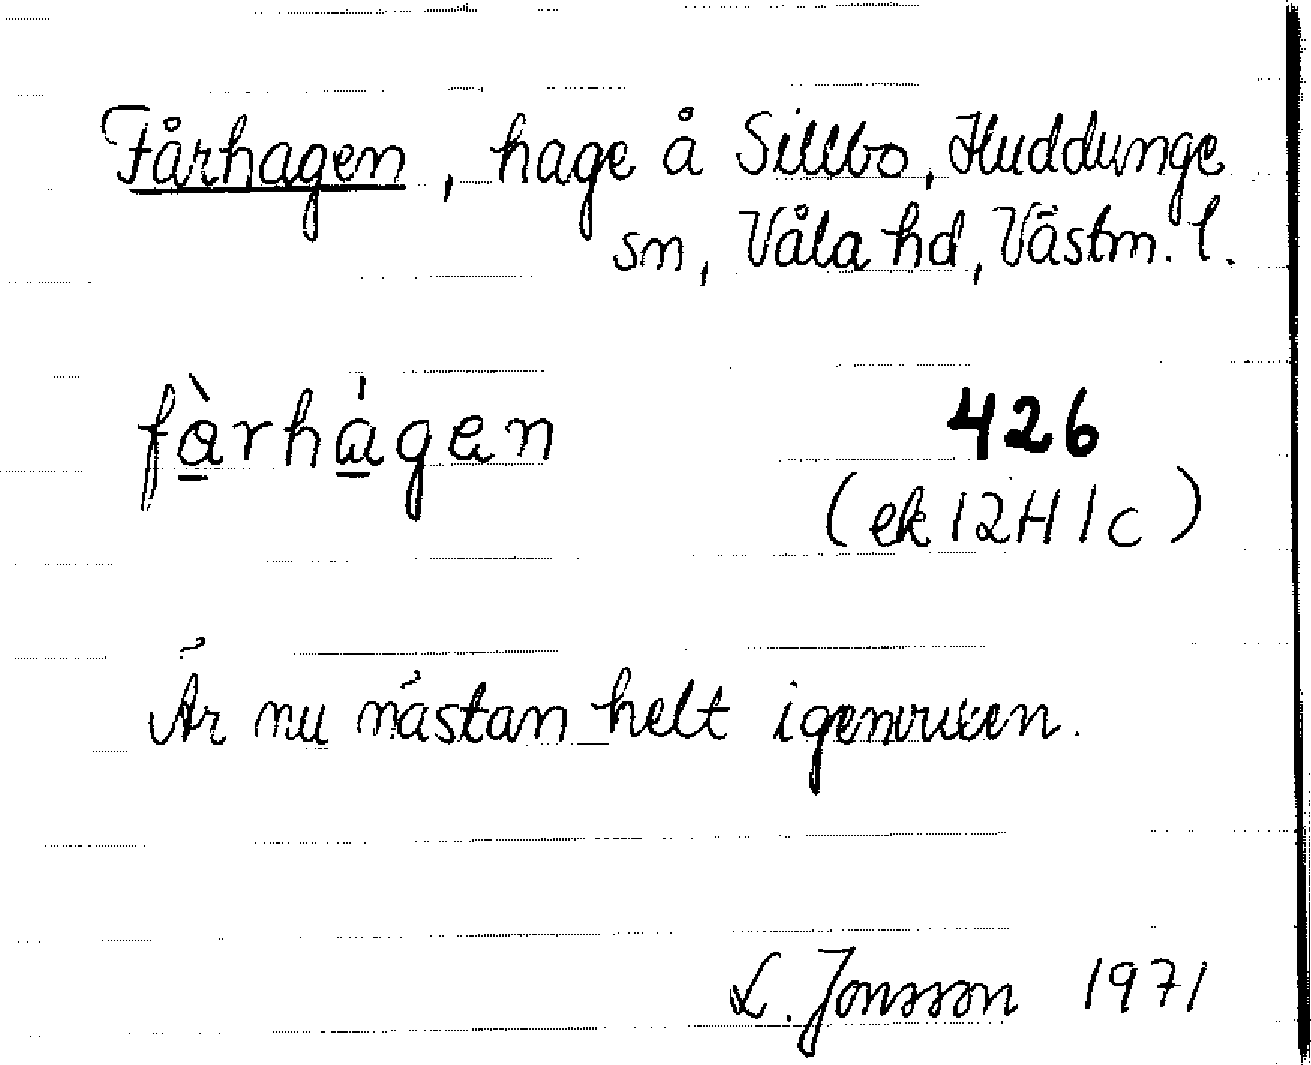 Fårhagen, hage å Sillbo, Huddunge
sn, Våla hd, Västm. l.
fàrhágen 426
(ek 12H 1c)
Är nu nästan helt igenvuxen.
L. Jonsson 1971